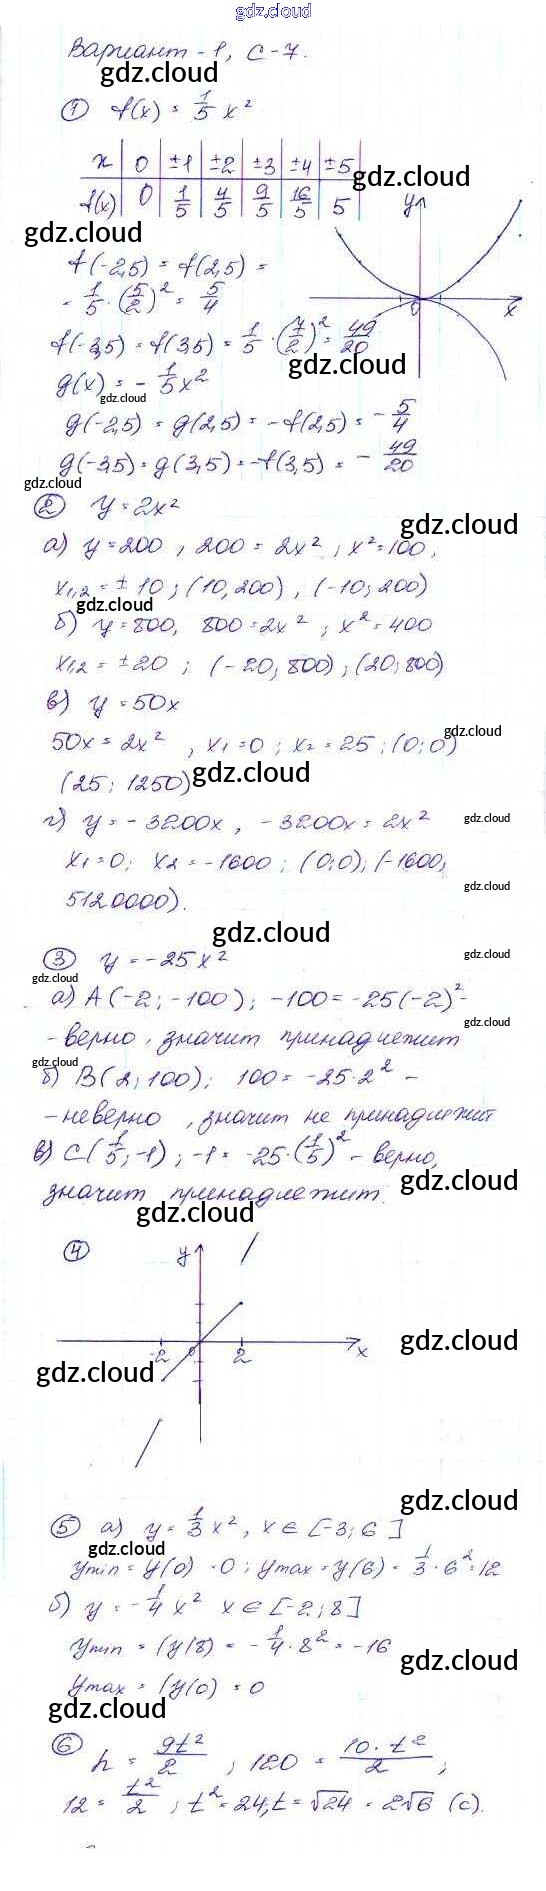 gdz.cloud
Вариант - 1, С-7.
gdz.cloud
① f(x) = 1/5 x²
x | 0 | ±1 | ±2 | ±3 | ±4 | ±5
f(x) | 0 | 1/5 | 4/5 | 9/5 | 16/5 | 5
gdz.cloud
y
gdz.cloud
0 x
f(-2,5) = f(2,5) =
= 1/5 · (5/2)² = 5/4
f(-3,5) = f(3,5) = 1/5 · (7/2)² = 49/20
gdz.cloud
g(x) = - 1/5 x²
gdz.cloud
g(-2,5) = g(2,5) = -f(2,5) = - 5/4
g(-3,5) = g(3,5) = -f(3,5) = - 49/20
gdz.cloud
② y = 2x²
gdz.cloud
а) y = 200 , 200 = 2x² , x² = 100,
x₁,₂ = ± 10 ; (10, 200) , (-10; 200)
gdz.cloud
б) y = 800, 800 = 2x² ; x² = 400
x₁,₂ = ±20 ; (-20; 800) ; (20; 800)
в) y = 50x
gdz.cloud
50x = 2x² , x₁ = 0 ; x₂ = 25 ; (0; 0)
(25; 1250)
gdz.cloud
г) y = - 3200x , - 3200x = 2x²
gdz.cloud
x₁ = 0; x₂ = -1600 ; (0; 0); (-1600;
gdz.cloud
5120000).
gdz.cloud
③ y = -25x²
gdz.cloud
gdz.cloud
а) A (-2; -100); -100 = -25(-2)² -
gdz.cloud
- верно, значит принадлежит
gdz.cloud
б) B(2; 100); 100 = -25·2² -
- неверно , значит не принадлежит
в) C(1/5; -1) ; -1 = -25·(1/5)² - верно,
gdz.cloud
значит принадлежит.
gdz.cloud
④
y
gdz.cloud
-2 0 2 x
gdz.cloud
gdz.cloud
⑤ а) y = 1/3 x², x ∈ [-3; 6]
gdz.cloud
ymin = y(0) = 0 ; ymax = y(6) = 1/3 · 6² = 12
б) y = - 1/4 x² x ∈ [-2; 8]
ymin = (y(8) = - 1/4 · 8² = -16
gdz.cloud
ymax = (y(0) = 0
gdz.cloud
⑥ h = gt²/2 ; 120 = 10·t²/2 ;
12 = t²/2 ; t² = 24; t = √24 = 2√6 (с).